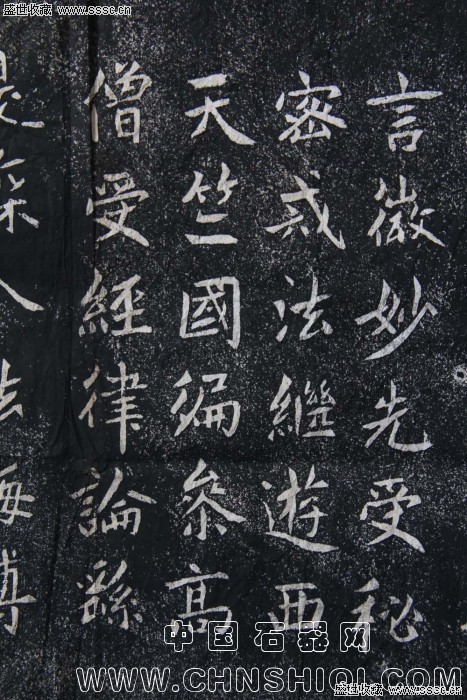 盛世收藏 www.sssc.cn
盛世收藏 www.sssc.cn
言微妙先受秘
密戒法繼遊西
天竺國徧叅高
僧受經律論繇
入法海博
中国石器网
WWW.CHNSHIQI.COM
盛世收藏 www.sssc.cn